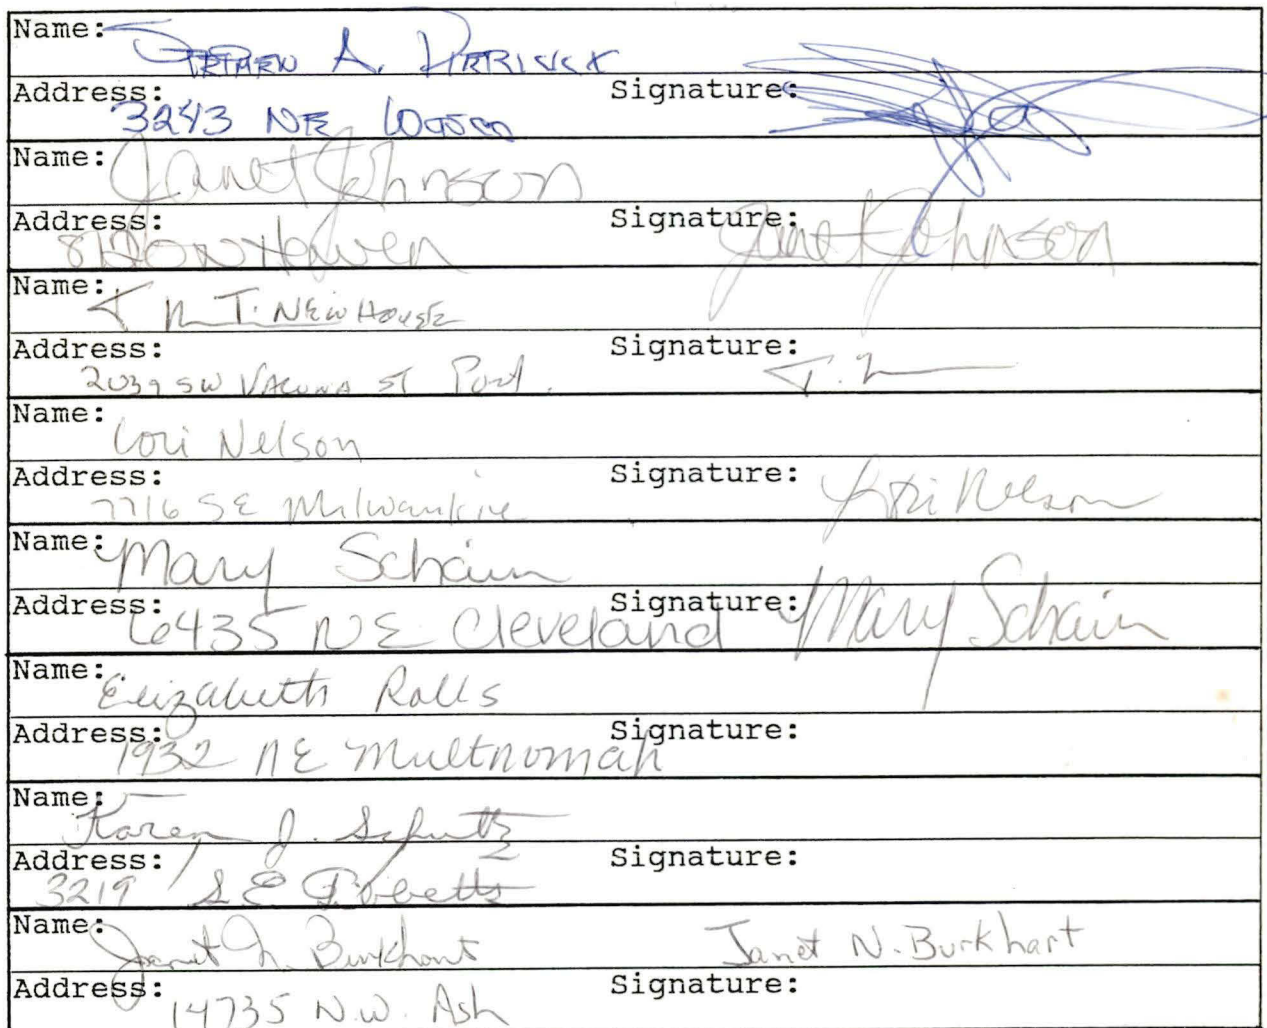 Name: Stephen A. Derrick
Address: 3243 NE Wasco Signature:
Name: Janet Johnson
Address: N Haven Signature: Janet Johnson
Name: T. Newhouse
Address: 2039 SW Vacuna St Port. Signature: T.
Name: Lori Nelson
Address: 7716 SE Milwaukie Signature: Lori Nelson
Name: Mary Schain
Address: 6435 NE Cleveland Signature: Mary Schain
Name: Elizabeth Rolls
Address: 1932 NE Multnomah Signature:
Name: Karen J. Schultz
Address: 3219 S.E. Signature:
Name: Janet N. Burkhart Janet N. Burkhart
Address: 14735 N.W. Ash Signature: